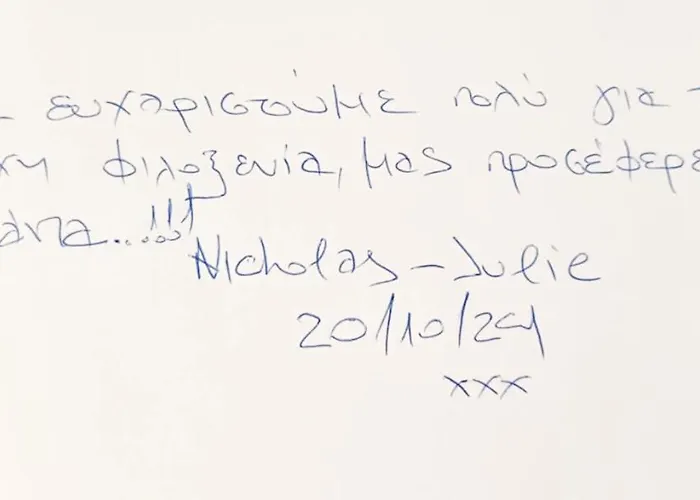 ευχαριστούμε πολύ για
φιλοξενία, μας προσέφερε
άντα...!!!
Nicholas - Julie
20/10/24
xxx